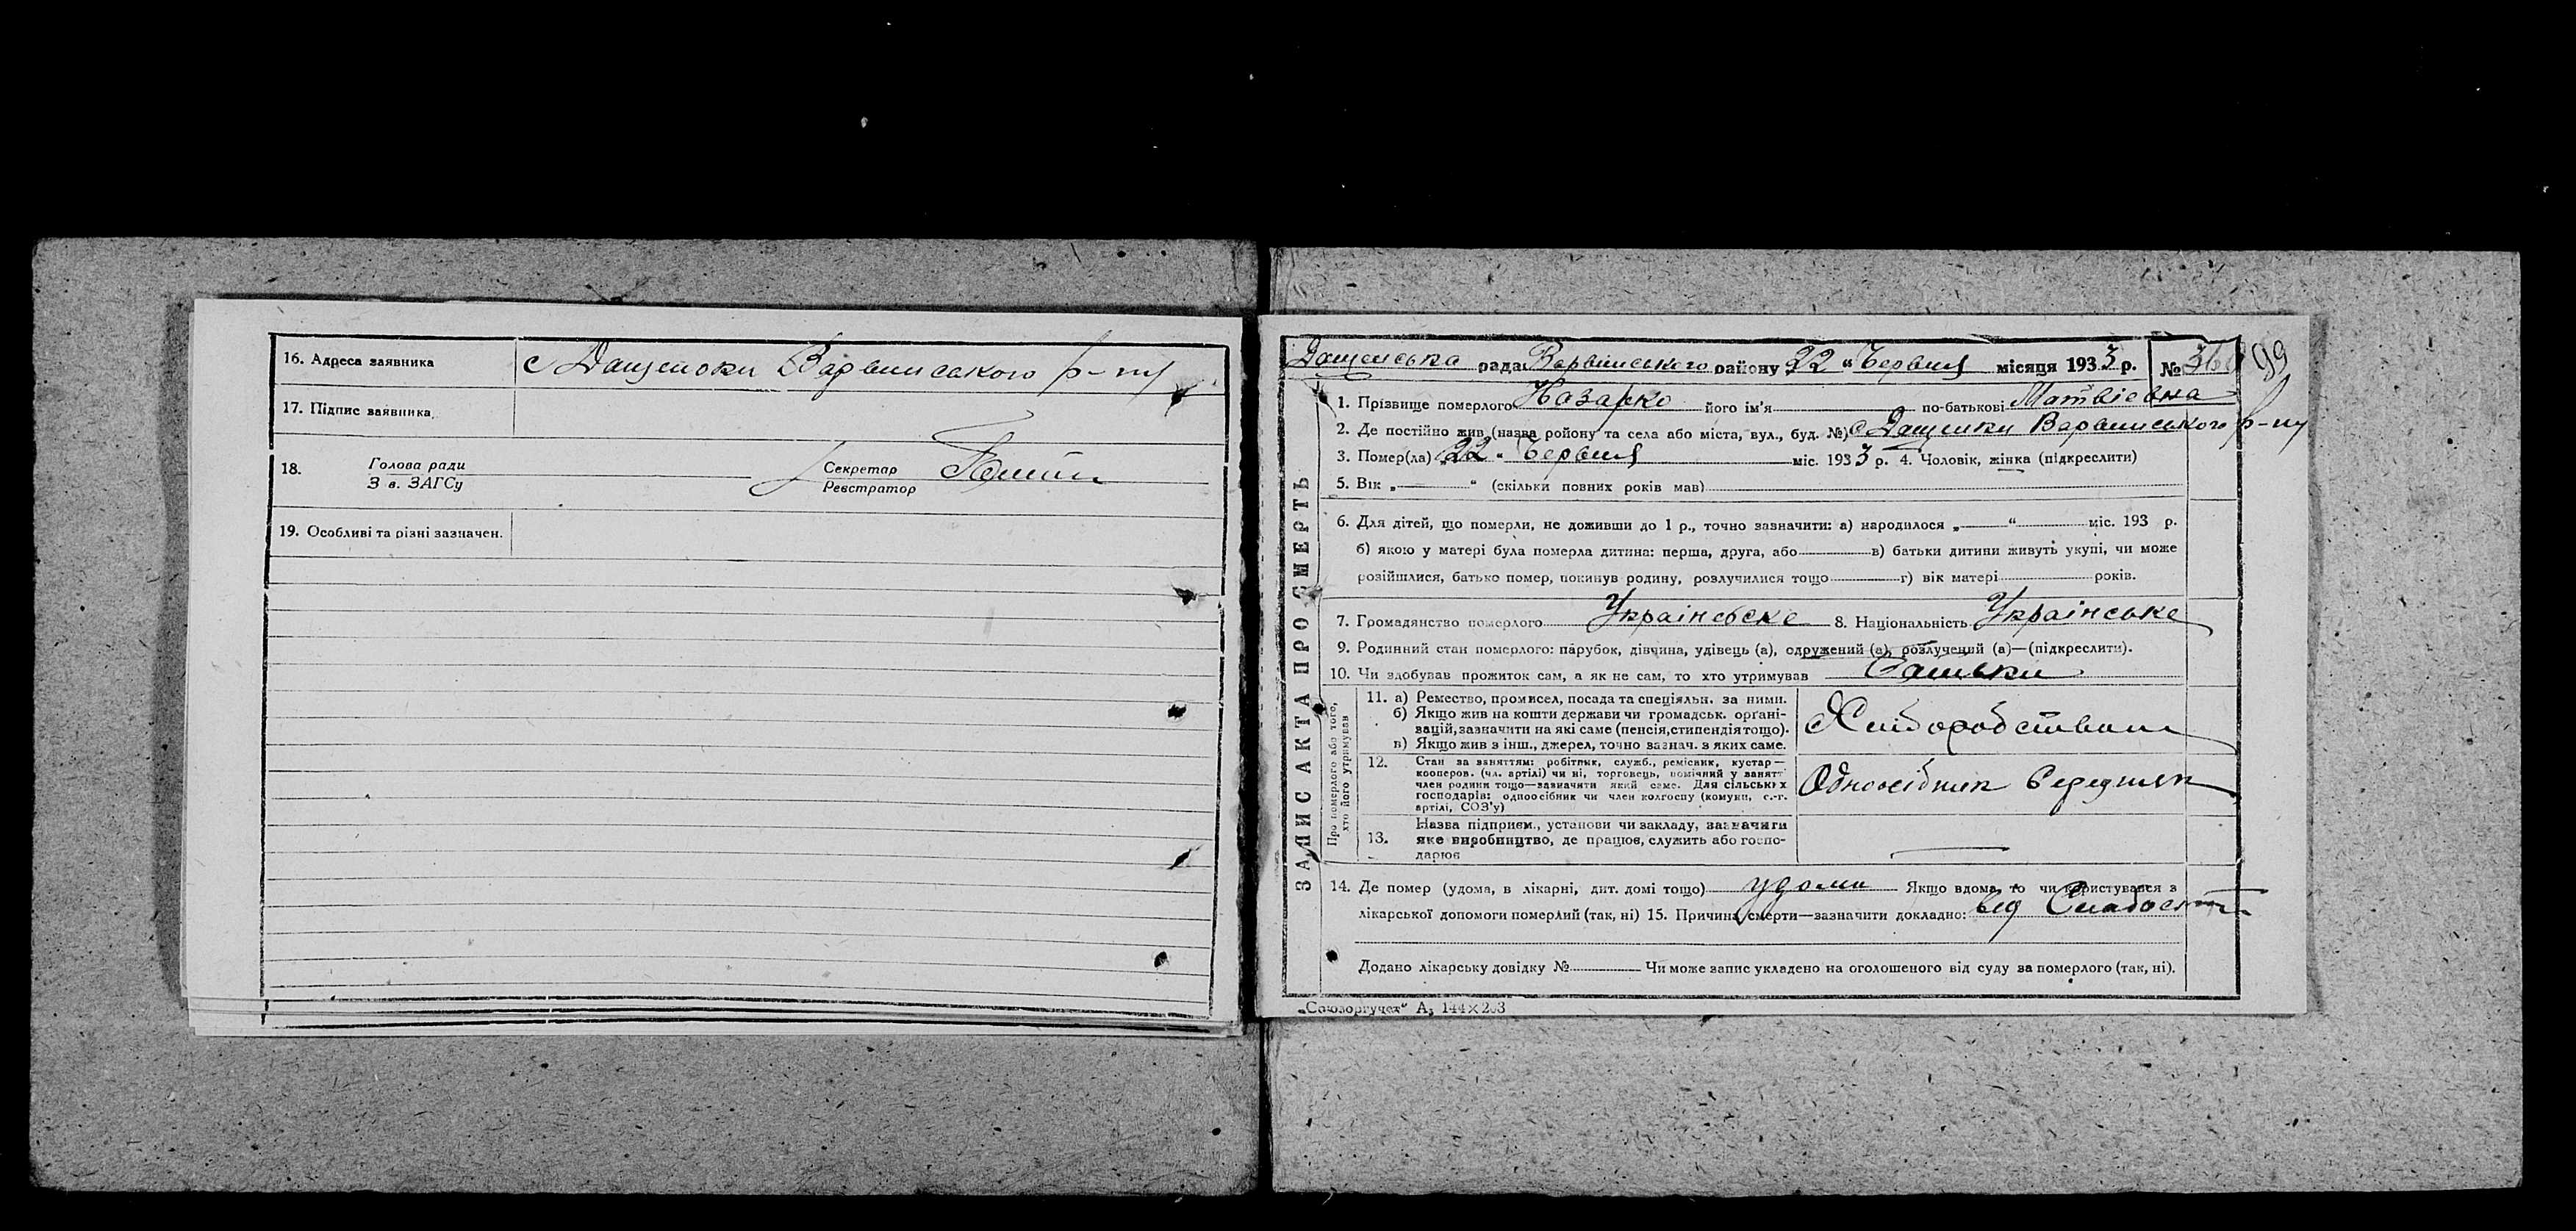 16. Адреса заявника с Дащенки Варвинського р-ну
17. Підпис заявника
18. Голова ради
З в. ЗАГСу
Секретар
Реєстратор
19. Особливі та різні зазначен.
ЗАПИС АКТА ПРО СМЕРТЬ
Дащенська рада Варвинського району 22 " Червня місяця 1933 р. №
99
1. Прізвище померлого Назарко його ім'я по-батькові Матвієвна
2. Де постійно жив (назва ройону та села або міста, вул., буд. №) с Дащенки Варвинського р-ну
3. Помер(ла) „22" Червня міс. 1933 р. 4. Чоловік, жінка (підкреслити)
5. Вік „ " (скільки повних років мав)
6. Для дітей, що померли, не доживши до 1 р., точно зазначити: а) народилося „ " міс. 193 р.
б) якою у матері була померла дитина: перша, друга, або в) батьки дитини живуть укупі, чи може
розійшлися, батько помер, покинув родину, розлучилися тощо г) вік матері років.
7. Громадянство померлого Українське 8. Національність Українське
9. Родинний стан померлого: парубок, дівчина, удівець (а), одружений (а), розлучений (а)—(підкреслити).
10. Чи здобував прожиток сам, а як не сам, то хто утримував батьки
Про померлого або того,
хто його утримував
11. а) Ремество, промисел, посада та спеціяльн. за ними.
б) Якщо жив на кошти держави чи громадськ. органі-
зацій, зазначити на які саме (пенсія, стипендія тощо).
в) Якщо жив з інш., джерел, точно зазнач. з яких саме.
Хлiборобством
12. Стан за заняттям: робітник, служб., ремісник, кустар—
кооперов. (чл. артілі) чи ні, торговець, помічний у занятт
член родини тощо—зазначити який саме. Для сільських
господарів: одноосібник чи член колгоспу (комуни, с.-г.
артілі, СОЗ'у)
Одноосібник Середняк
13. Назва підприєм., установи чи закладу, зазначити
яке виробництво, де працює, служить або госпо-
дарює
14. Де помер (удома, в лікарні, дит. домі тощо) удома Якщо вдома, то чи користувався з
лікарської допомоги померлий (так, ні) 15. Причина смерти—зазначити докладно: від Слабости
Додано лікарську довідку № Чи може запис укладено на оголошеного від суду за померлого (так, ні).
„Союзоргучет" А₅ 144×203